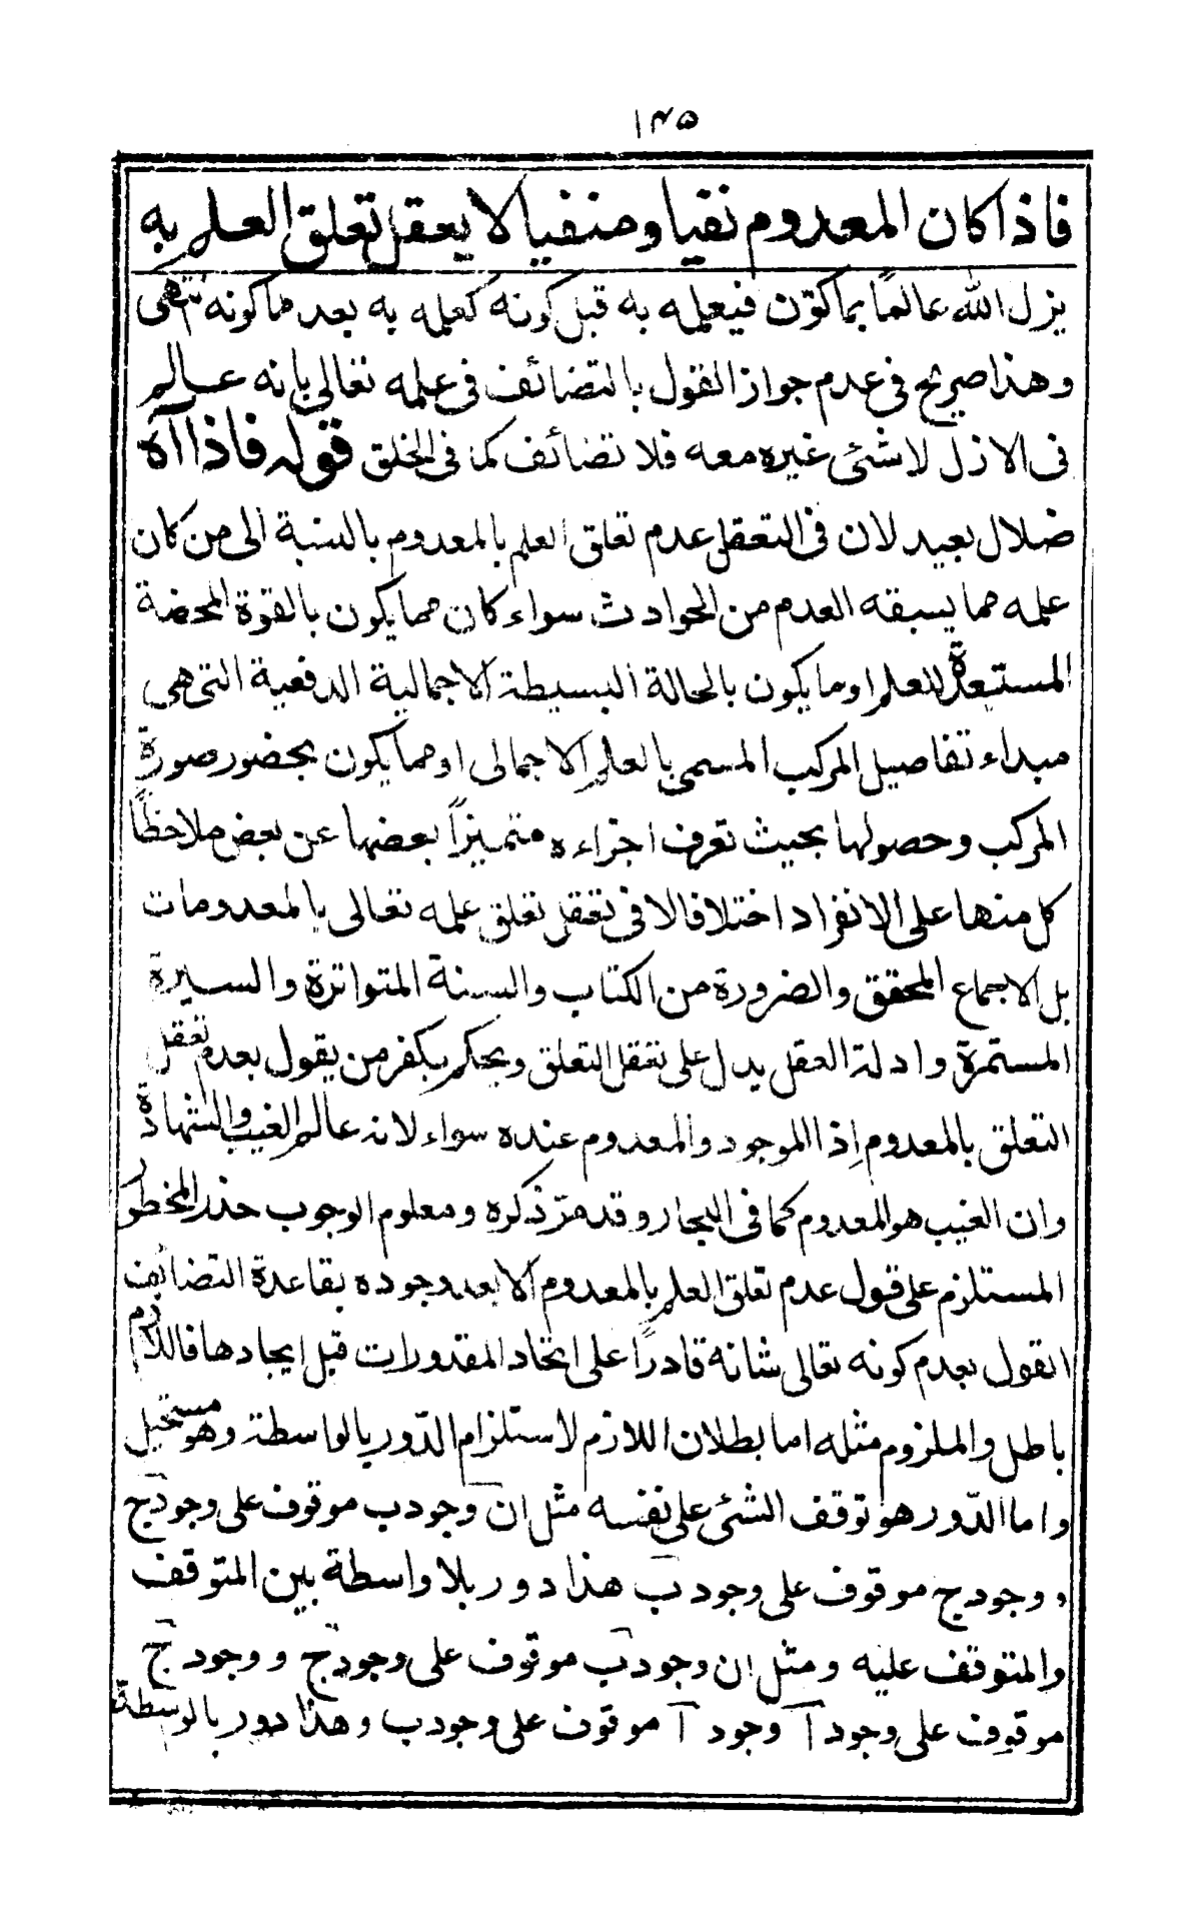 ۱۴۵
فاذا كان المعدوم نفيا ومنفيا لا يعقل تعلق العلم به
يزل الله عالمًا بما كوّن فيعلمه به قبل كونه كعلمه به بعد ما كونه انتهى
وهذا صريح فى عدم جواز القول بالتضائف فى علمه تعالى بانه عالم
فى الازل لا شئ غيره معه فلا تضائف كما فى الخلق قوله فاذا اه
ضلال بعيد لان فى التعقل عدم تعلق العلم بالمعدوم بالنسبة الى من كان
علمه مما يسبقه العدم من الحوادث سواء كان مما يكون بالقوة المحضة
المستبعدة للعلم او ما يكون بالحالة البسيطة الاجمالية الدفعية التى هى
مبداء تفاصيل المركب المسمى بالعلم الاجمالى او مما يكون بحضور صورة
المركب وحصولها بحيث تعرف اجزاءه متميزاً بعضها عن بعض ملاحظاً
كل منها على الانفراد اختلافا لا فى تعقل تعلق علمه تعالى بالمعدومات
بل الاجماع المحقق والضرورة من الكتاب والسنة المتواترة والسيرة
المستمرة وادلة العقل يدل على تعقل التعلق ويحكم بكفر من يقول بعدم تعقل
التعلق بالمعدوم إذ الموجود والمعدوم عنده سواء لانه عالم الغيب والشهادة
وان الغيب هو المعدوم كما فى البحار وقد مرّ ذكره ومعلوم الوجوب حذر المخطور
المستلزم على قول عدم تعلق العلم بالمعدوم الا بعد وجوده بقاعدة التضائف
القول بعدم كونه تعالى شانه قادراً على اتخاد المقدورات قبل ايجادها فاللازم
باطل والملزوم مثله اما بطلان اللازم لاستلزام الدّور بالواسطة وهو مستحيل
واما الدّور هو توقف الشئ على نفسه مثل ان وجود ب موقوف على وجود ج
و وجود ج موقوف على وجود ب هذا دور بلا واسطة بين المتوقف
والمتوقف عليه ومثل ان وجود ب موقوف على وجود ج و وجود ج
موقوف على وجود آ وجود آ موقوف على وجود ب وهذا دور بالوسطة